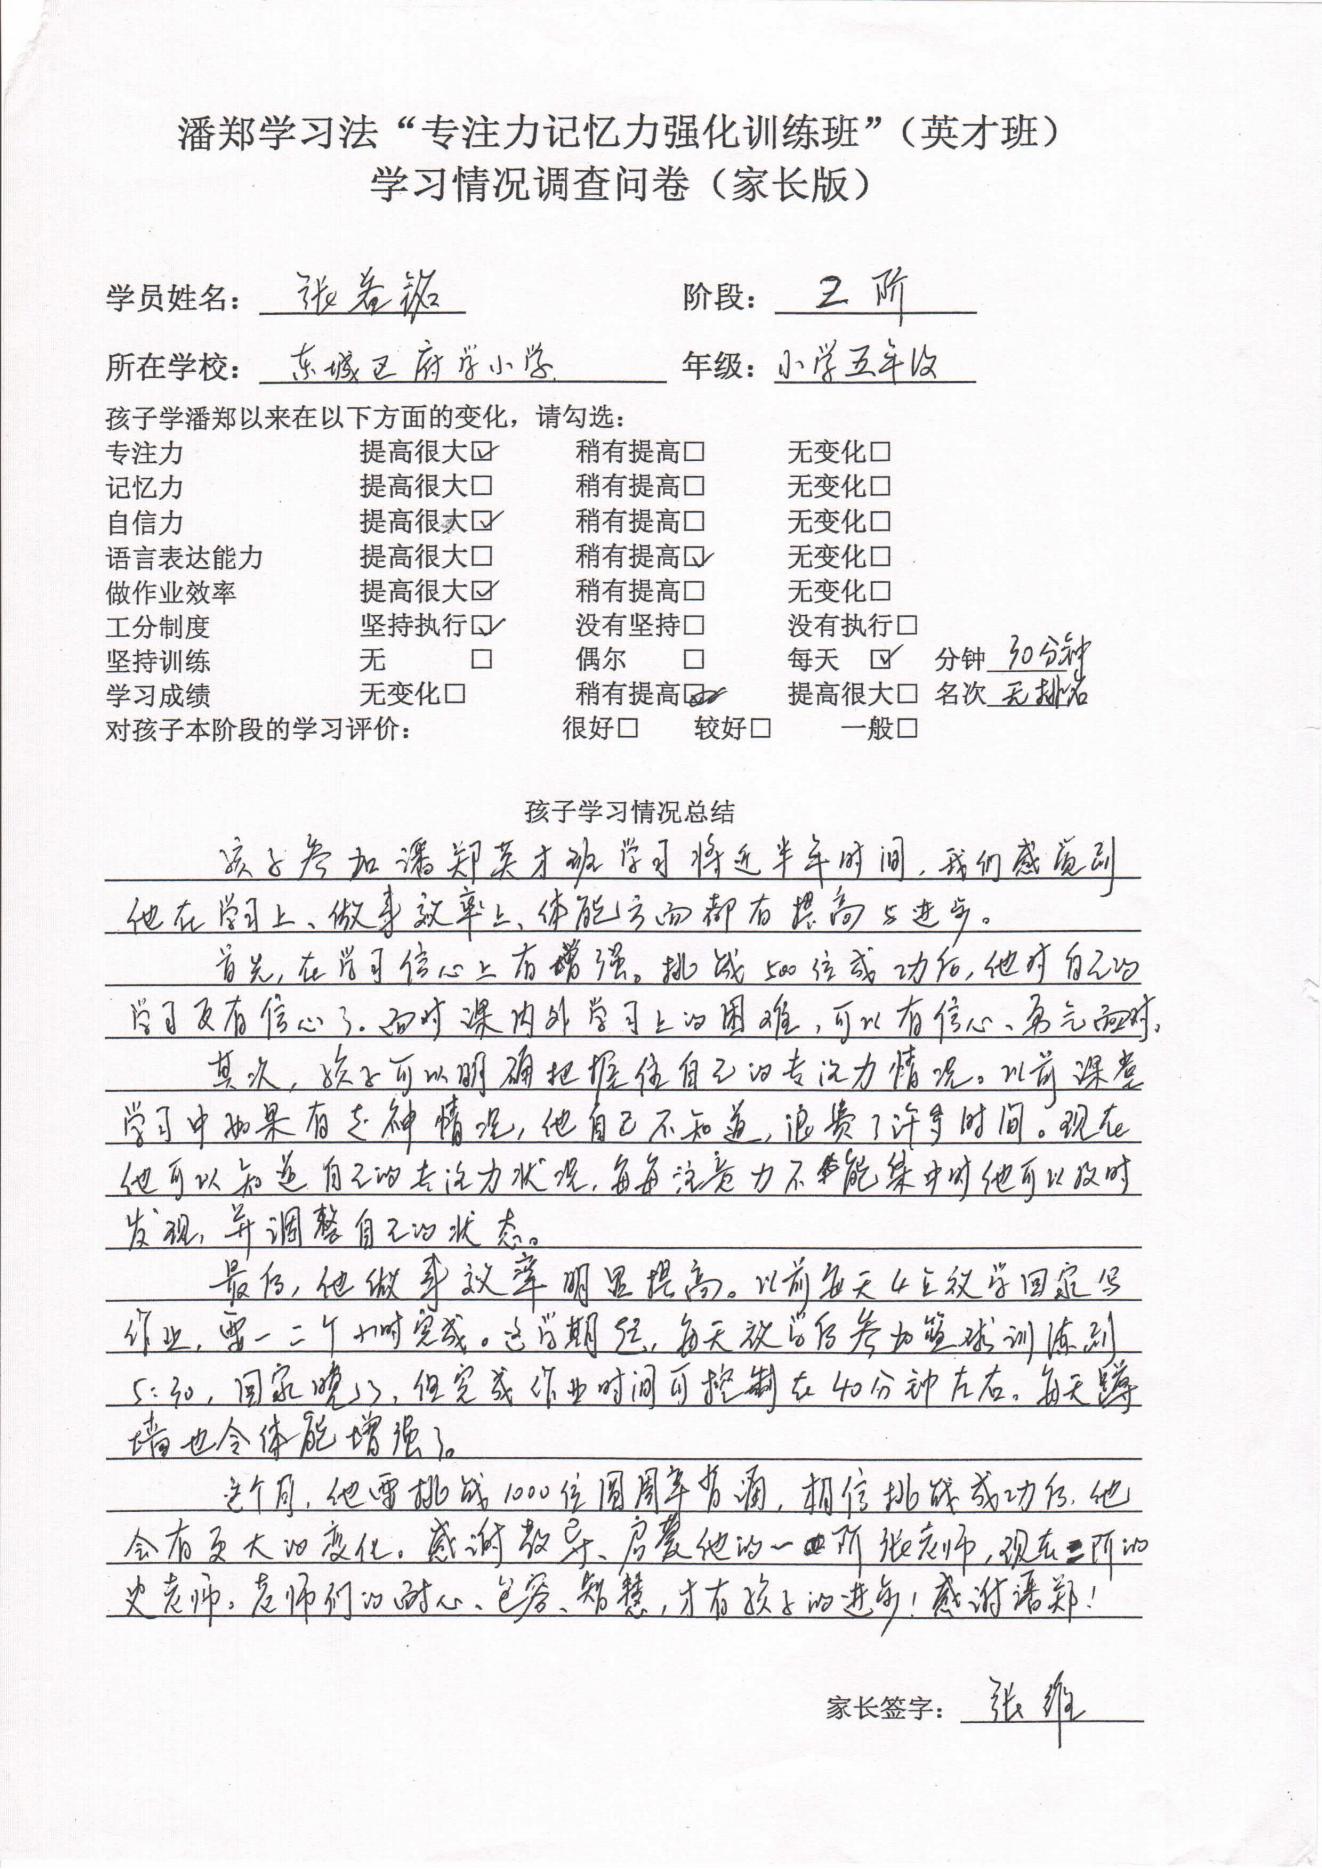 潘郑学习法“专注力记忆力强化训练班”（英才班）
学习情况调查问卷（家长版）
学员姓名： 张 铭 阶段： 2 阶
所在学校： 东城区府学小学 年级： 小学五年级
孩子学潘郑以来在以下方面的变化，请勾选：
专注力 提高很大☑ 稍有提高□ 无变化□
记忆力 提高很大□ 稍有提高□ 无变化□
自信力 提高很大☑ 稍有提高□ 无变化□
语言表达能力 提高很大□ 稍有提高☑ 无变化□
做作业效率 提高很大☑ 稍有提高□ 无变化□
工分制度 坚持执行☑ 没有坚持□ 没有执行□
坚持训练 无 □ 偶尔 □ 每天 ☑ 分钟 30分钟
学习成绩 无变化□ 稍有提高☑ 提高很大□ 名次 无排名
对孩子本阶段的学习评价： 很好□ 较好□ 一般□
孩子学习情况总结
孩子参加潘郑英才班学习将近半年时间，我们感觉到
他在学习上、做事效率上、体能方面都有提高与进步。
首先，在学习信心上有增强。挑战500位成功后，他对自己的
学习更有信心了。面对课内外学习上的困难，可以有信心、勇气面对。
其次，孩子可以明确把握住自己的专注力情况。以前课堂
学习中如果有走神情况，他自己不知道，浪费了许多时间。现在
他可以知道自己的专注力状况，每每注意力不能集中时他可以及时
发现，并调整自己的状态。
最后，他做事效率明显提高。以前每天4点放学回家写
作业，要一二个小时完成。这学期，每天放学后参加篮球训练到
5:30，回家晚了，但完成作业时间可控制在40分钟左右。每天蹲
墙也令体能增强了。
这个月，他要挑战1000位圆周率背诵，相信挑战成功后，他
会有更大的变化。感谢教导、启蒙他的一阶张老师，现在二阶的
史老师。老师们的耐心、包容、智慧，才有孩子的进步！感谢潘郑！
家长签字： 张维